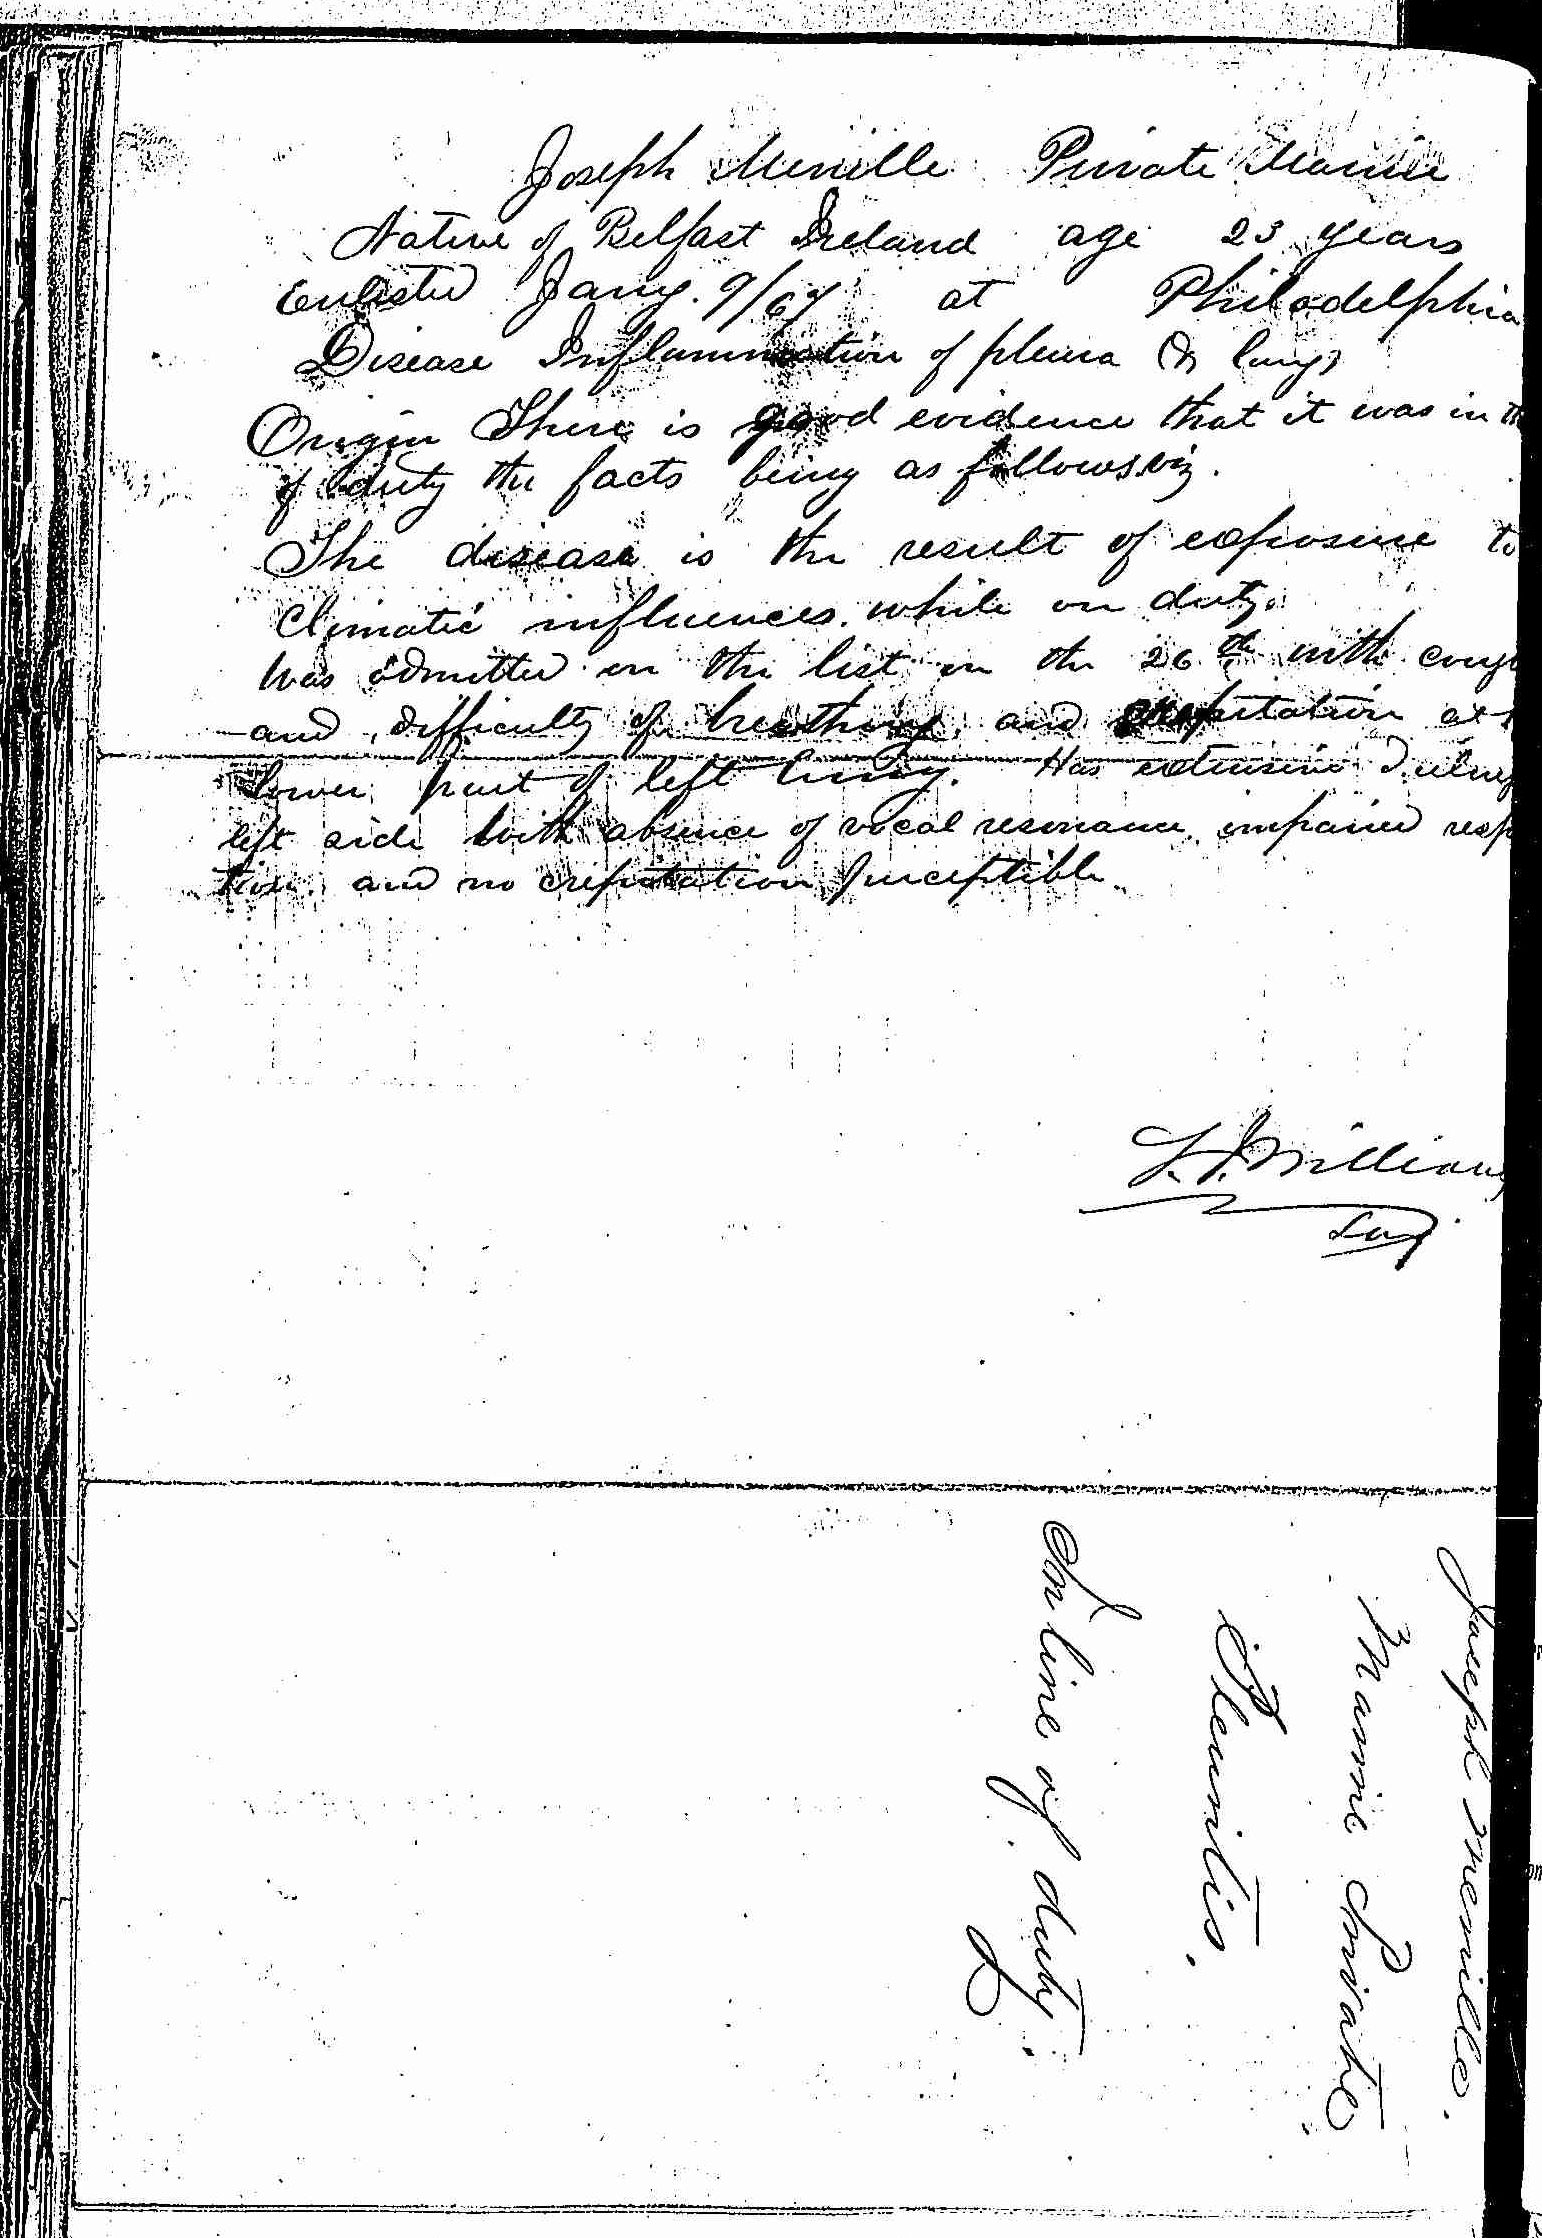 Joseph Menille Private Marine
Native of Belfast Ireland age 23 years
Enlisted Jany. 9/67 at Philadelphia
Disease Inflammation of pleura & lungs
Origin There is good evidence that it was in th
of duty the facts being as follows viz.
The disease is the result of exposure to
Climatic influences while on duty.
Was admitted on the list on the 26th with coug
and difficulty of breathing and crepitation at
lower part of left lung. Has extensive dulnes
left side with absence of vocal resonance, impaired resp
tion and no crepitation perceptible
Williams
Sur
Joseph Menille.
Marine Private
Pleuritis.
In line of duty.